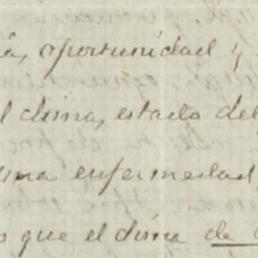 oportunidad y
clima, estado del
enfermedad,
que el clima de